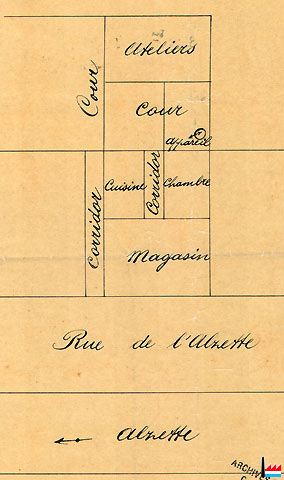 Ateliers
Cour
Cour
appareil
Cuisine
Corridor
Chambre
Corridor
Magasin
Rue de l'Alzette
Alzette
ARCHIVES